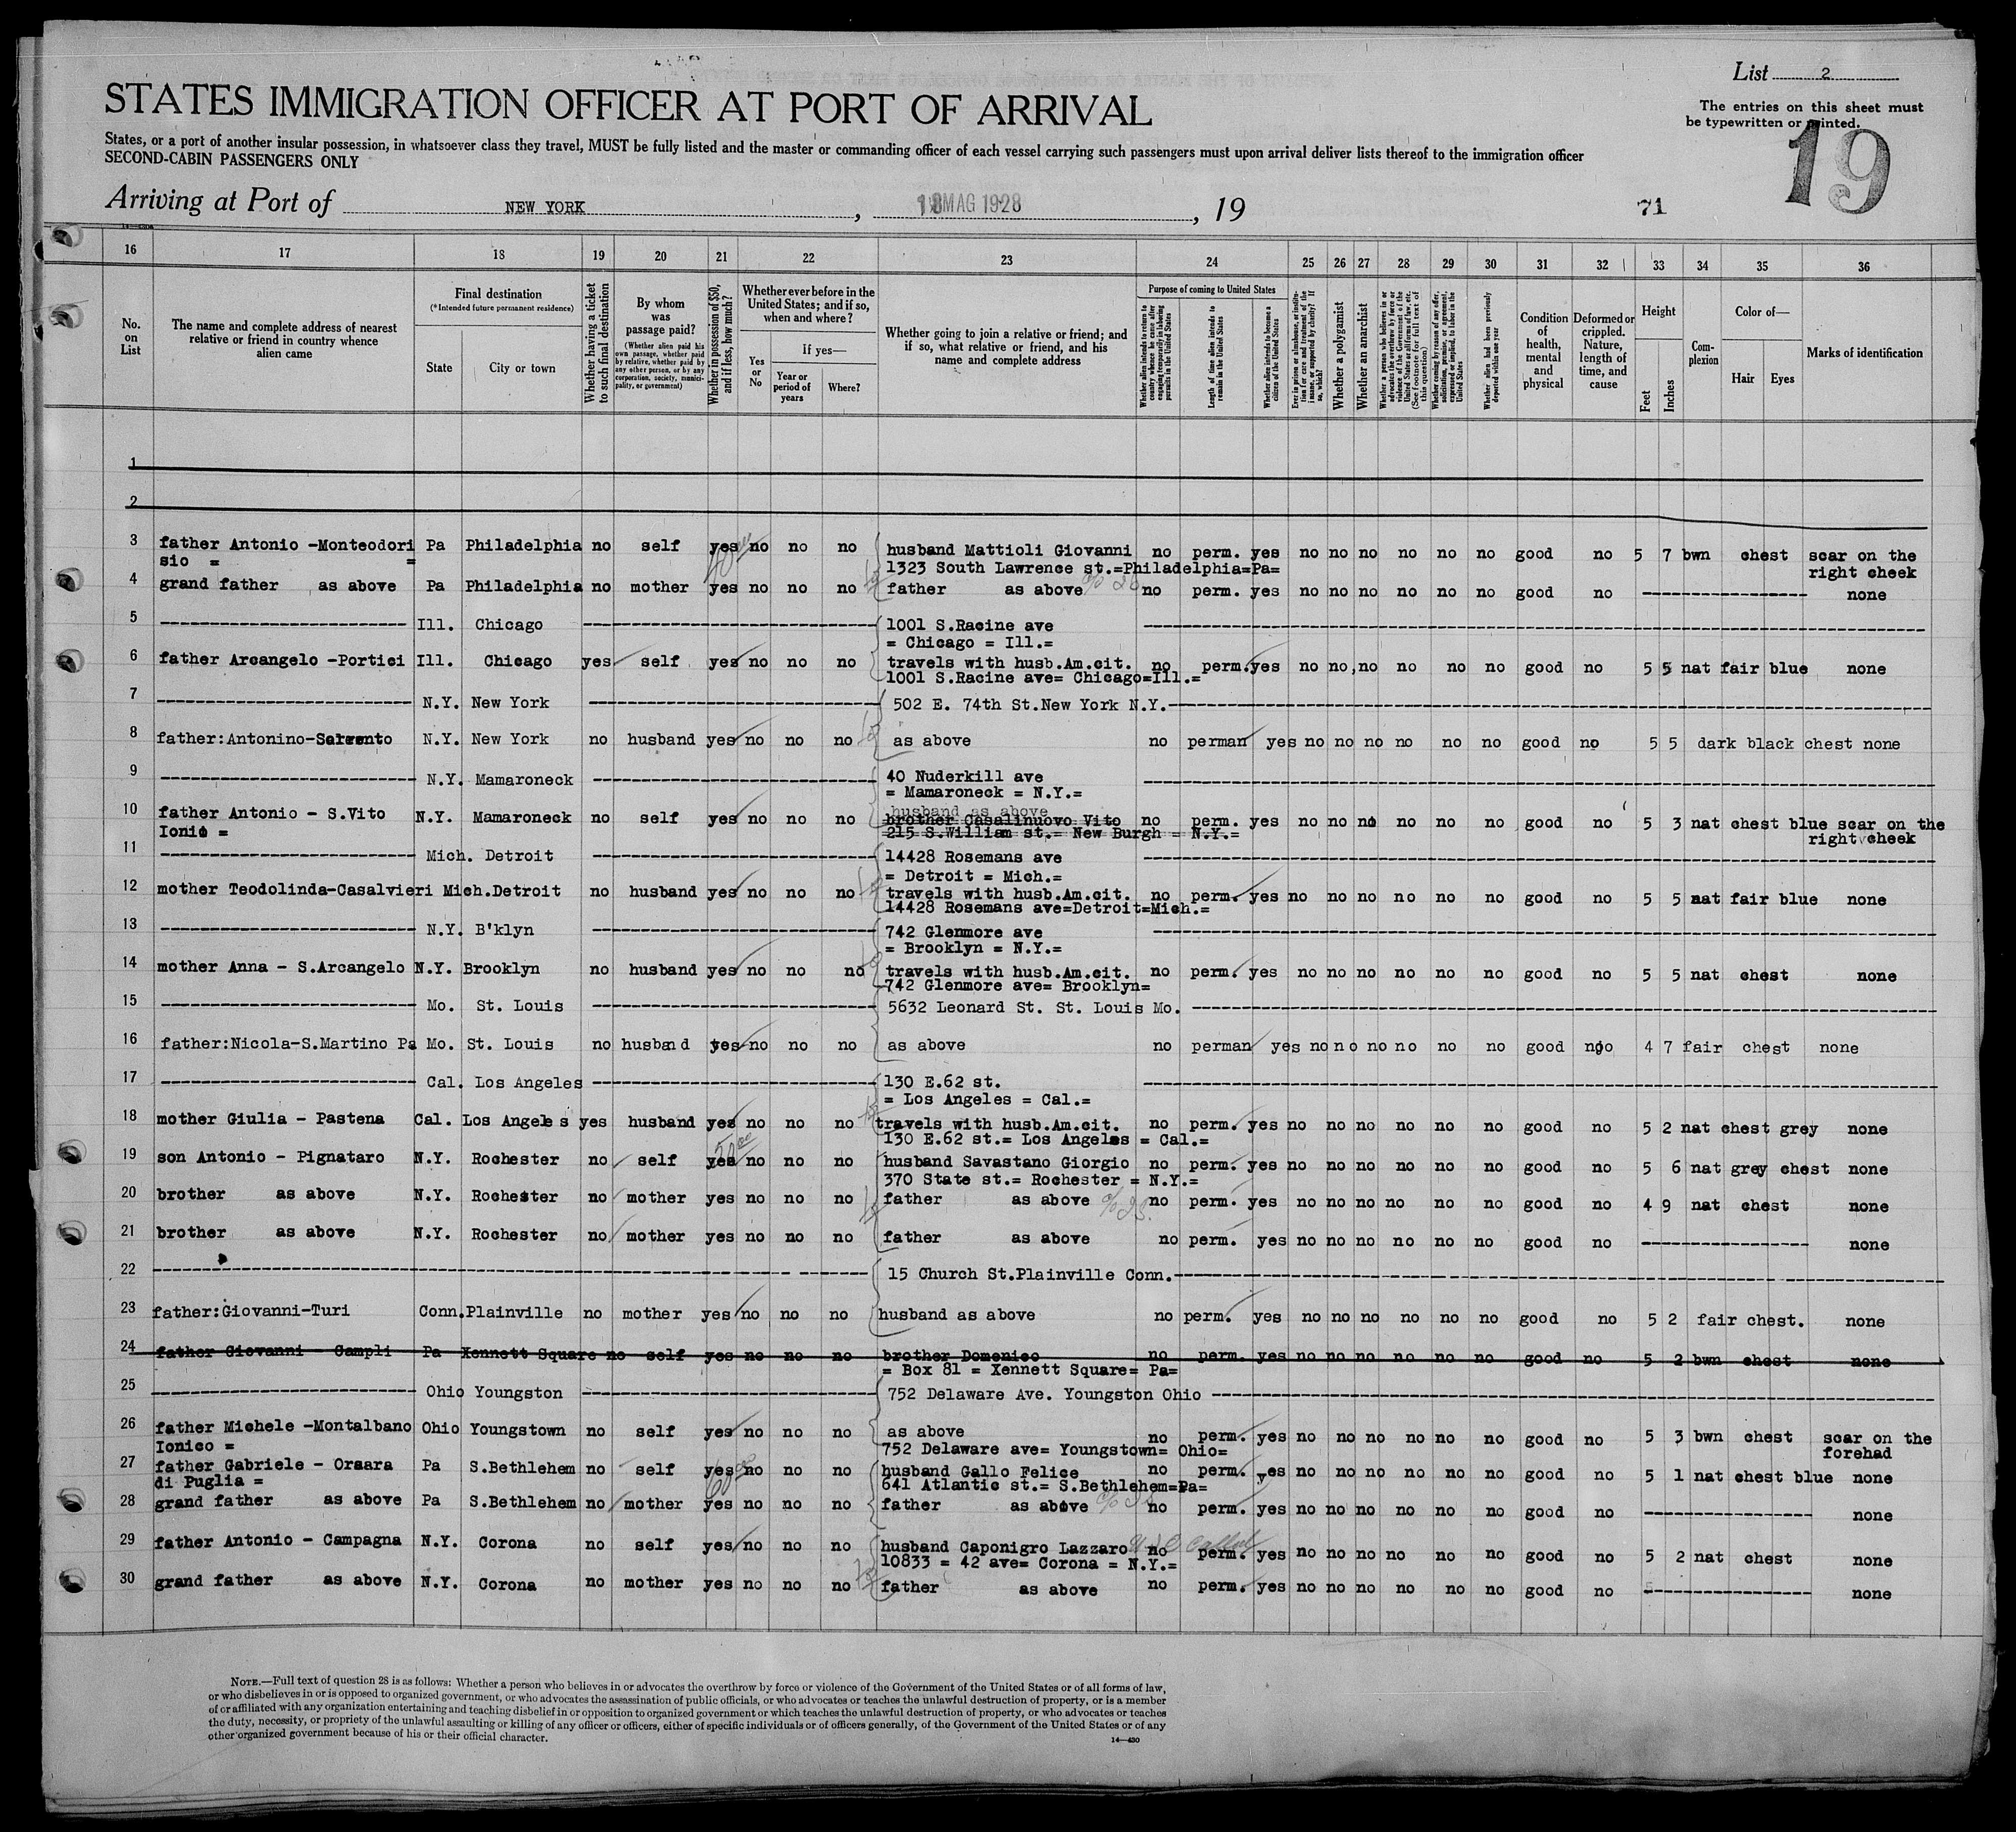 List 2
STATES IMMIGRATION OFFICER AT PORT OF ARRIVAL
The entries on this sheet must
be typewritten or printed.
States, or a port of another insular possession, in whatsoever class they travel, MUST be fully listed and the master or commanding officer of each vessel carrying such passengers must upon arrival deliver lists thereof to the immigration officer
SECOND-CABIN PASSENGERS ONLY
19
Arriving at Port of NEW YORK, 18 MAG 1928, 19
71
16 17 18 19 20 21 22 23 24 25 26 27 28 29 30 31 32 33 34 35 36
No. on List
The name and complete address of nearest relative or friend in country whence alien came
Final destination
(*Intended future permanent residence)
State
City or town
Whether having a ticket to such final destination
By whom was passage paid?
(Whether alien paid his own passage, whether paid by relative, whether paid by any other person, or by any corporation, society, municipality, or government)
Whether in possession of $50, and if less, how much?
Whether ever before in the United States; and if so, when and where?
Yes or No
If yes—
Year or period of years
Where?
Whether going to join a relative or friend; and if so, what relative or friend, and his name and complete address
Purpose of coming to United States
Whether alien intends to return to country whence he came after engaging temporarily in laboring pursuits in the United States
Length of time alien intends to remain in the United States
Whether alien intends to become a citizen of the United States
Ever in prison or almshouse, or institution for care and treatment of the insane, or supported by charity? If so, which?
Whether a polygamist
Whether an anarchist
Whether a person who believes in or advocates the overthrow by force or violence of the Government of the United States or all forms of law, etc. (See footnote for full text of this question)
Whether coming by reason of any offer, solicitation, promise, or agreement, expressed or implied, to labor in the United States
Whether alien had been previously deported within one year
Condition of health, mental and physical
Deformed or crippled. Nature, length of time, and cause
Height
Feet
Inches
Complexion
Color of—
Hair
Eyes
Marks of identification
1
2
3 father Antonio -Monteodori Pa Philadelphia no self yes no no no husband Mattioli Giovanni no perm. yes no no no no no no good no 5 7 bwn chest scar on the
sio = = 1323 South Lawrence st.=Philadelphia=Pa= right cheek
4 grand father as above Pa Philadelphia no mother yes no no no father as above no perm. yes no no no no no no good no ----------------- none
5 ------------------------- Ill. Chicago ------------------------------ 1001 S.Racine ave
= Chicago = Ill.=
6 father Arcangelo -Portici Ill. Chicago yes self yes no no no travels with husb.Am.cit. no perm. yes no no, no no no no good no 5 5 nat fair blue none
1001 S.Racine ave= Chicago=Ill.=
7 ------------------------- N.Y. New York ------------------------------ 502 E. 74th St.New York N.Y.-----
8 father:Antonino-Sorrento N.Y. New York no husband yes no no no as above no perman yes no no no no no no good no 5 5 dark black chest none
9 ------------------------- N.Y. Mamaroneck ------------------------------ 40 Nuderkill ave
= Mamaroneck = N.Y.=
husband as above
10 father Antonio - S.Vito N.Y. Mamaroneck no self yes no no no brother Casalinuovo Vito no perm. yes no no no no no no good no 5 3 nat chest blue scar on the
Ionio = 215 S.William st.= New Burgh = N.Y.= right cheek
11 ------------------------- Mich. Detroit ------------------------------ 14428 Rosemans ave
= Detroit = Mich.=
12 mother Teodolinda-Casalvieri Mich.Detroit no husband yes no no no travels with husb.Am.cit. no perm. yes no no no no no no good no 5 5 nat fair blue none
14428 Rosemans ave=Detroit=Mich.=
13 ------------------------- N.Y. B'klyn ------------------------------ 742 Glenmore ave
= Brooklyn = N.Y.=
14 mother Anna - S.Arcangelo N.Y. Brooklyn no husband yes no no no travels with husb.Am.cit. no perm. yes no no no no no no good no 5 5 nat chest none
742 Glenmore ave= Brooklyn=
15 ------------------------- Mo. St. Louis ------------------------------ 5632 Leonard St. St. Louis Mo. -----
16 father:Nicola-S.Martino Pa Mo. St. Louis no husband yes no no no as above no perman yes no no no no no no good no 4 7 fair chest none
17 ------------------------- Cal. Los Angeles ------------------------------ 130 E.62 st.
= Los Angeles = Cal.=
18 mother Giulia - Pastena Cal. Los Angeles yes husband yes no no no travels with husb.Am.cit. no perm. yes no no no no no no good no 5 2 nat chest grey none
130 E.62 st.= Los Angeles = Cal.=
50.00
19 son Antonio - Pignataro N.Y. Rochester no self yes no no no husband Savastano Giorgio no perm. yes no no no no no no good no 5 6 nat grey chest none
370 State st.= Rochester = N.Y.=
20 brother as above N.Y. Rochester no mother yes no no no father as above no perm. yes no no no no no no good no 4 9 nat chest none
21 brother as above N.Y. Rochester no mother yes no no no father as above no perm. yes no no no no no no good no ----------------- none
22 ------------------------------ 15 Church St.Plainville Conn.-----
23 father:Giovanni-Turi Conn.Plainville no mother yes no no no husband as above no perm. yes no no no no no no good no 5 2 fair chest. none
24 father Giovanni - Campli Pa Xennett Square no self yes no no no brother Domenico no perm. yes no no no no no no good no 5 2 bwn chest none
= Box 81 = Xennett Square= Pa=
25 ------------------------- Ohio Youngston ------------------------------ 752 Delaware Ave. Youngston Ohio -----
26 father Michele -Montalbano Ohio Youngstown no self yes no no no as above no perm. yes no no no no no no good no 5 3 bwn chest scar on the
Ionico = 752 Delaware ave= Youngstown= Ohio= forehad
27 father Gabriele - Orsara Pa S.Bethlehem no self yes no no no husband Gallo Felice no perm. yes no no no no no no good no 5 1 nat chest blue none
di Puglia = 641 Atlantic st.= S.Bethlehem=Pa=
28 grand father as above Pa S.Bethlehem no mother yes no no no father as above no perm. yes no no no no no no good no ----------------- none
29 father Antonio - Campagna N.Y. Corona no self yes no no no husband Caponigro Lazzaro no perm. yes no no no no no no good no 5 2 nat chest none
10833 = 42 ave= Corona = N.Y.=
30 grand father as above N.Y. Corona no mother yes no no no father as above no perm. yes no no no no no no good no ----------------- none
NOTE.—Full text of question 28 is as follows: Whether a person who believes in or advocates the overthrow by force or violence of the Government of the United States or of all forms of law,
or who disbelieves in or is opposed to organized government, or who advocates the assassination of public officials, or who advocates or teaches the unlawful destruction of property, or is a member
of or affiliated with any organization entertaining and teaching disbelief in or opposition to organized government or which teaches the unlawful destruction of property, or who advocates or teaches
the duty, necessity, or propriety of the unlawful assaulting or killing of any officer or officers, either of specific individuals or of officers generally, of the Government of the United States or of any
other organized government because of his or their official character.
14—430